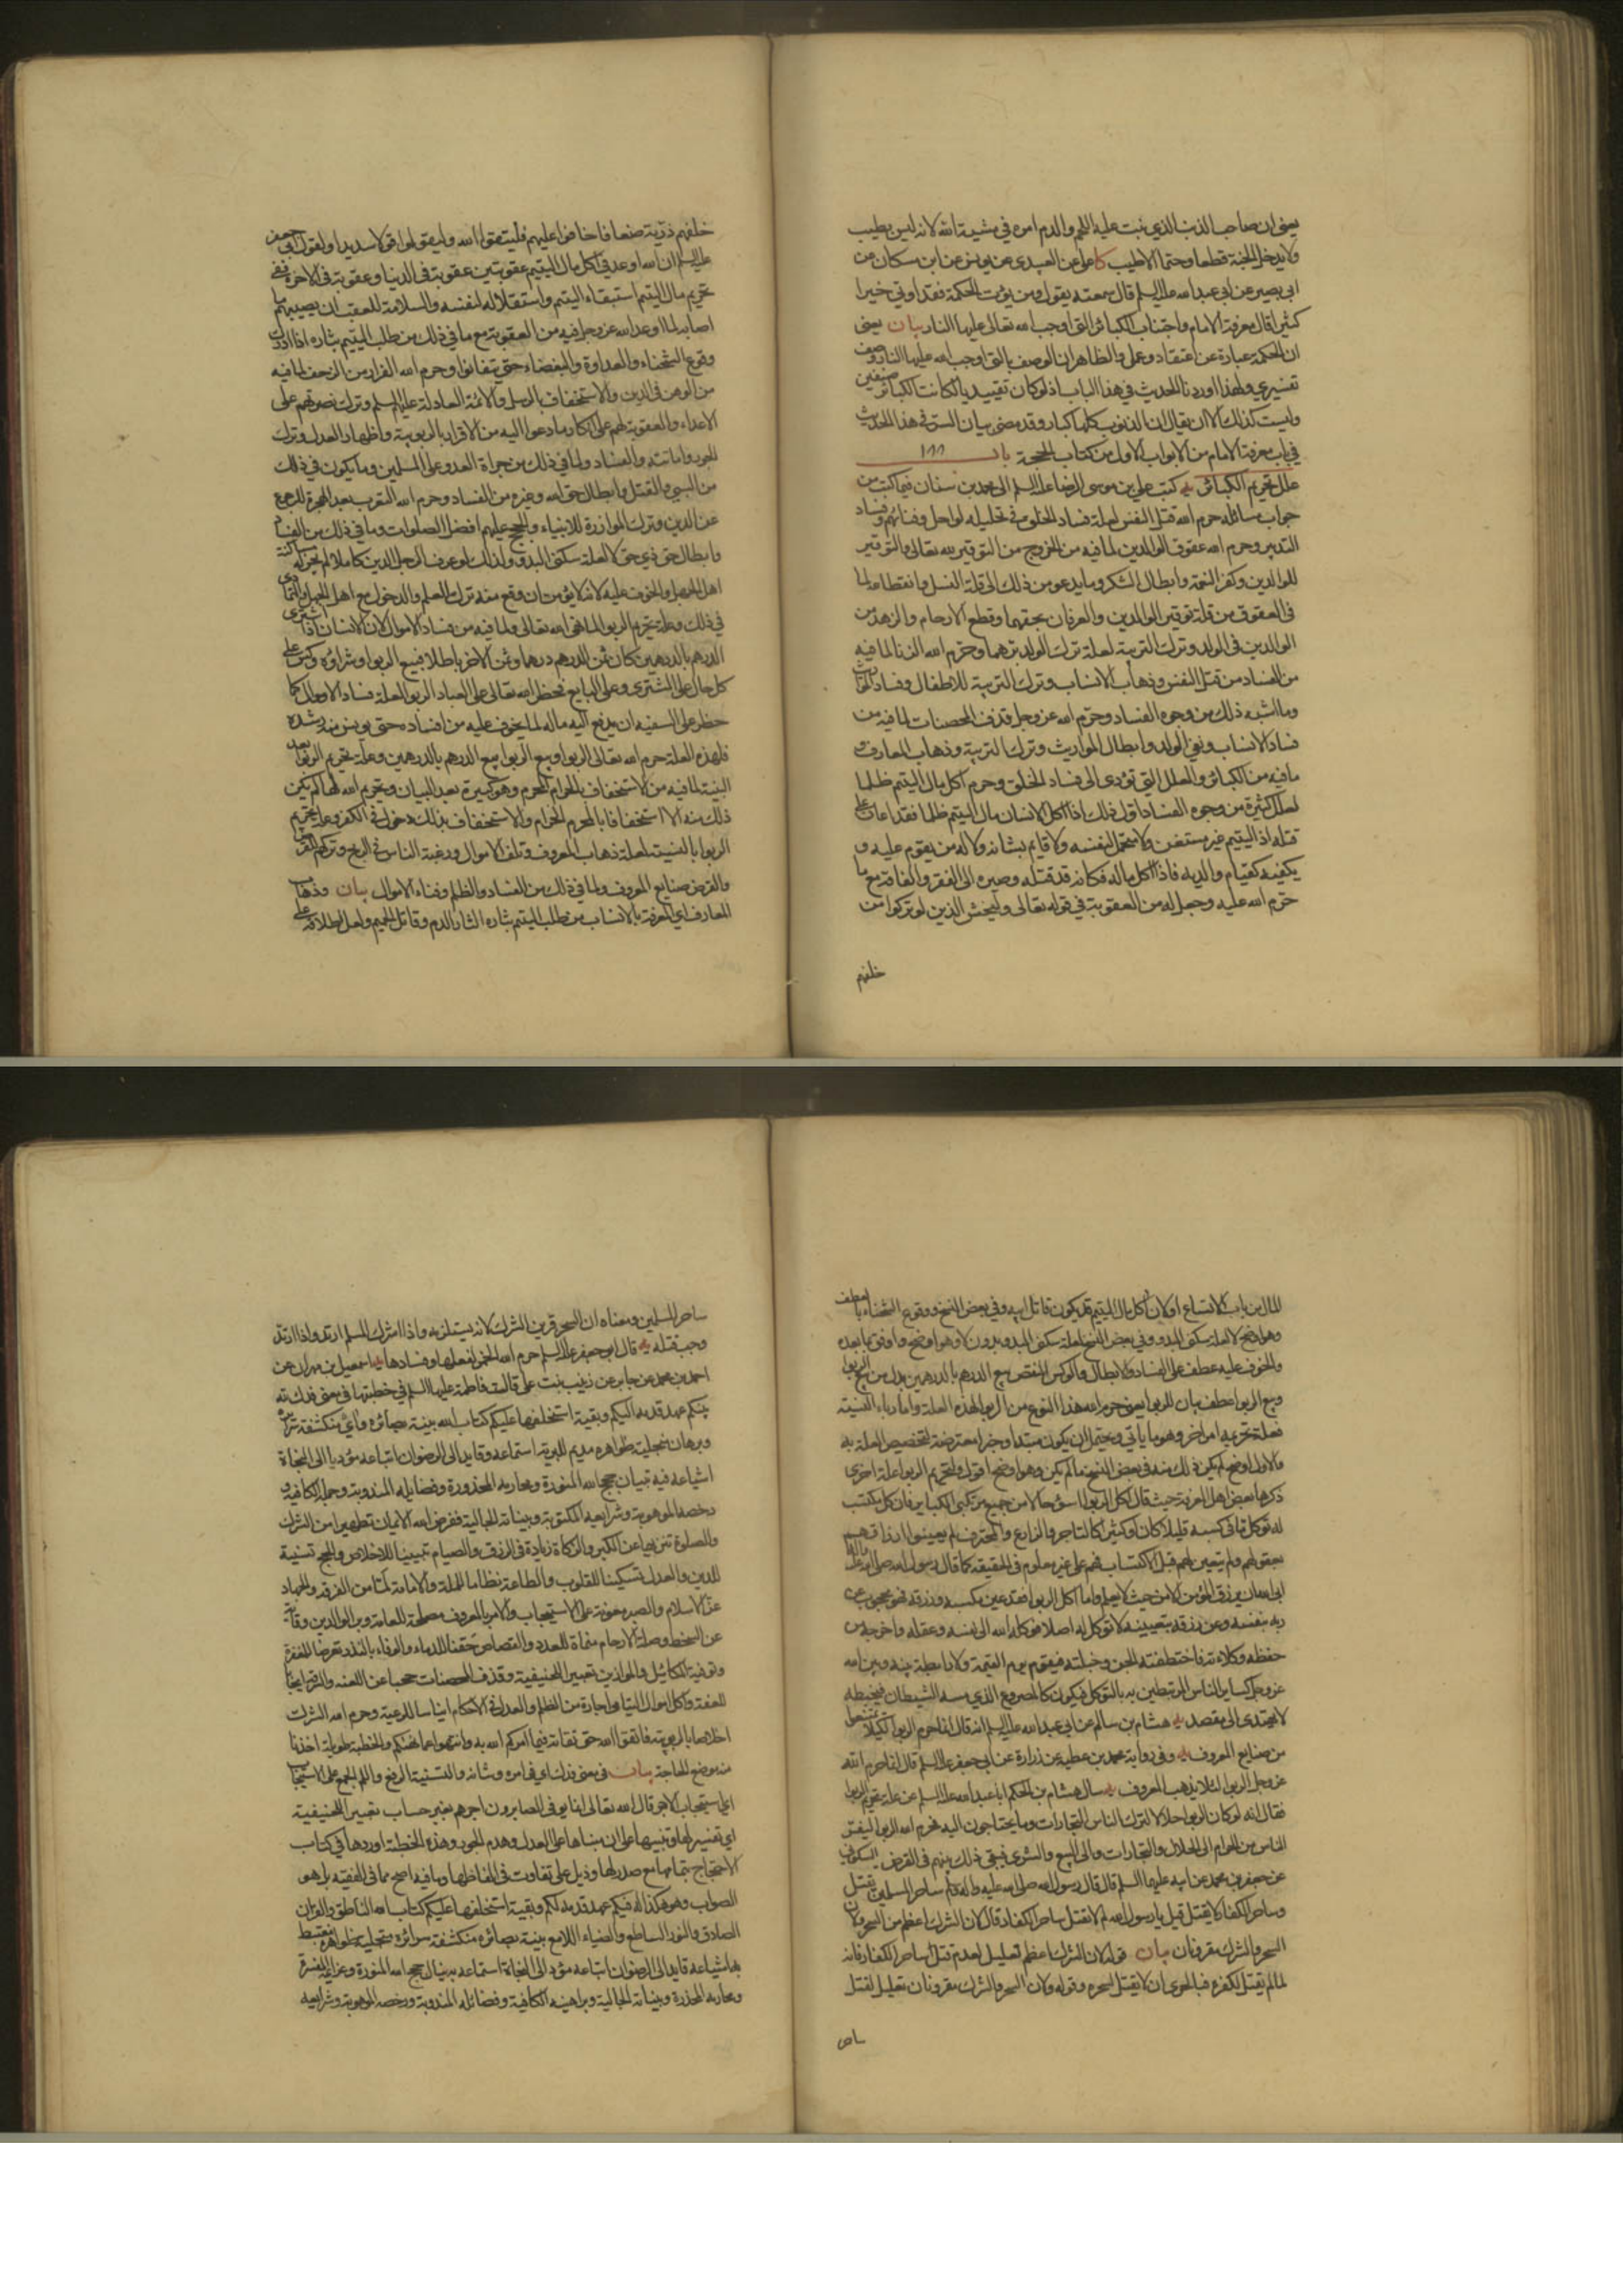 يعنى ان صاحب الذنب الذي نبت عليه اللحم والدم امره في مشية الله لانه ليس بطيب
ولا يدخل الجنة قطعا وحتما الا طيب كا على عن العبيدى عن يونس عن ابن مسكان عن
ابى بصير عن ابى عبد الله عليه السلم قال سمعته يقول ومن يؤت الحكمة فقد اوتي خيرا
كثيرا قال معرفة الامام واجتناب الكبائر التى اوجب الله تعالى عليها النار بيان يعنى
ان الحكمة عبارة عن اعتقاد وعمل والظاهر ان الوصف بالتى اوجب الله عليها النار وصف
تفسيري ولهذا اوردنا الحديث في هذا الباب اذ لو كان تقييديا لكانت الكبائر صنفين
وليست كذلك الا ان يقال ان الذنوب كلها كبار وقد مضى بيان السر في هذا الحديث
في باب معرفة الامام من الابواب الاول من كتاب الحجة باب ١٨٨
علل تحريم الكبائر يه كتب على بن موسى الرضا عليه السلم الى محمد بن سنان فيما كتب من
جواب مسائله حرم الله قتل النفس لعلة فساد الخلق في تحليله لو احل وفنائهم وفساد
التدبير وحرم الله عقوق الوالدين لما فيه من الخروج من التوقير لله تعالى والتوقير
للوالدين وكفر النعمة وابطال الشكر وما يدعو من ذلك الى قلة النسل وانقطاعه لما
فى العقوق من قلة توقير الوالدين والعرفان بحقهما وقطع الارحام والزهد من
الوالدين فى الولد وترك التربية لعلة ترك الولد برهما وحرم الله الزنا لما فيه
من الفساد من قتل النفس وذهاب الانساب وترك التربية للاطفال وفساد المواريث
وما اشبه ذلك من وجوه الفساد وحرم الله عز وجل قذف المحصنات لما فيه من
فساد الانساب ونفي الولد وابطال المواريث وترك التربية وذهاب المعارف و
ما فيه من الكبائر والعلل التي تؤدى الى فساد الخلق وحرم اكل مال اليتيم ظلما
لعلل كثيرة من وجوه الفساد اول ذلك اذا اكل الانسان مال اليتيم ظلما فقد اعان على
قتله اذ اليتيم غير مستغن ولا يتحمل لنفسه ولا قائم بشانه ولا له من يقوم عليه و
يكفيه كقيام والديه فاذا اكل ماله فكانه قد قتله وصيره الى الفقر والفاقة مع ما
حرم الله عليه وجعل له من العقوبة في قوله تعالى وليخش الذين لو تركوا من
خلفهم
خلفهم ذرية ضعافا خافوا عليهم فليتقوا الله وليقولوا قولا سديدا ولقول ابى جعفر
عليه السلم ان الله اوعد في اكل مال اليتيم عقوبتين عقوبة فى الدنيا وعقوبة فى الاخرة ففى
تحريم مال اليتيم استبقاء اليتيم واستقلاله لنفسه والسلامة للعقب ان يصيبهم ما
اصابه لما اوعد الله عز وجل فيه من العقوبة مع ما في ذلك من طلب اليتيم بثاره اذا ادرك
وقوع الشحناء والعداوة والبغضاء حتى يتفانوا وحرم الله الفرار من الزحف لما فيه
من الوهن فى الدين والاستخفاف بالرسل والائمة العادلة عليهم السلم وترك نصرتهم على
الاعداء والعقوبة لهم على انكار ما دعوا اليه من الاقرار بالربوبية واظهار العدل وترك
الجور واماتته والفساد ولما في ذلك من جراة العدو على المسلمين وما يكون في ذلك
من السبي والقتل وابطال حق الله وغيره من الفساد وحرم الله التعرب بعد الهجرة للرجوع
عن الدين وترك الموازرة للانبياء والحجج عليهم افضل الصلوات وما في ذلك من الفساد
وابطال حق ذي حق لا لعلة سكنى البدو ولذلك لو عرف الرجل الدين كاملا لم يجز له مساكنة
اهل الجهل والخوف عليه لانه لا يؤمن ان وقع منه ترك العلم والدخول مع اهل الجهل والتمادي
في ذلك وعلة تحريم الربوا لما نهى الله تعالى ولما فيه من فساد الاموال لان الانسان اذا اشترى
الدرهم بالدرهمين كان ثمن الدرهم درهما وثمن الاخر باطلا فبيع الربوا وشراؤه وكس على
كل حال على المشترى وعلى البايع فحظر الله تعالى على العباد الربوا لعلة فساد الاموال كما
حظر على السفيه ان يدفع اليه ماله لما يخوف عليه من افساده حتى يونس منه رشده
فلهذه العلة حرم الله تعالى الربوا وبيع الربوا بيع الدرهم بالدرهمين وعلة تحريم الربوا بعد
البينة لما فيه من الاستخفاف بالحرام المحرم وهو كبيرة بعد البيان وتحريم الله لها لم يكن
ذلك منه الا استخفافا بالمحرم الحرام والاستخفاف بذلك دخول فى الكفر وعلة تحريم
الربوا بالنسية لعلة ذهاب المعروف وتلف الاموال ورغبة الناس في الربح وتركهم القرض
والقرض صنايع المعروف ولما في ذلك من الفساد والظلم وفناء الاموال بيان وذهاب
المعارف اي المعرفة بالانساب من طلب اليتيم بثاره الثار الدم وقاتل الحميم ولعل اطلاقه على
المال من باب الاتساع او لان اكل مال اليتيم قد يكون قاتل ابيه وفي بعض النسخ ووقوع الشحناء بالعطف
وهو اوضح لا لعلة سكنى البدو وفي بعض النسخ لعلة سكنى البدو بدون لا وهو اوضح واوفق بما بعده
والخوف عليه عطف على الفساد والابطال والوكس النقص بيع الدرهم بالدرهمين بدل من بيع الربوا
وبيع الربوا عطف بيان للربوا يعنى حرم الله هذا النوع من الربوا لهذه العلة واما رباء النسية
فعلة تحريمه امر اخر وهو ما ياتي ويحتمل ان يكون مبتدا وخبرا معترضة لتخصيص العلة به
والاول اوضح لم يكن ذلك منه فى بعض النسخ ما لم يكن وهو اوضح اقول ولتحريم الربوا علة اخرى
ذكرها بعض اهل المعرفة حيث قال اكل الربوا اسوء حالا من جميع مرتكبي الكباير فان كل مكتسب
له توكل ما فى كسبه قليلا كان او كثيرا كالتاجر والزارع والمحترف لم يعينوا ارزاقهم
بعقولهم ولم يتعين لهم قبل الاكتساب فهم على غير معلوم فى الحقيقة كما قال رسول الله صلى الله عليه واله
ابى الله ان يرزق المؤمن الا من حيث لا يعلم واما اكل الربوا فقد عين مكسبه ورزقه فهو محجوب عن
ربه بنفسه وعن رزقه بتعيينه لا توكل له اصلا فوكله الله الى نفسه وعقله واخرجه من
حفظه وكلاءته فاختطفته الجن وخبلته فيقوم يوم القيمة ولا رابطة بينه وبين الله
عز وجل كساير الناس المرتبطين به بالتوكل فيكون كالمصروع الذي مسه الشيطان فيخبطه
لا يهتدى الى مقصد يه هشام بن سالم عن ابي عبد الله عليه السلم انه قال انما حرم الربوا لكيلا يمتنعوا
من صنايع المعروف يه وفى رواية محمد بن عطية عن زرارة عن ابى جعفر عليه السلم قال انما حرم الله
عز وجل الربوا لئلا يذهب المعروف يه سال هشام بن الحكم ابا عبد الله عليه السلم عن علة تحريم الربوا
فقال انه لو كان الربوا حلالا لترك الناس التجارات وما يحتاجون اليه فحرم الله الربوا ليفر
الناس من الحرام الى الحلال والتجارات والى البيع والشرى فيبقى ذلك بينهم فى القرض السكوني
عن جعفر بن محمد عن ابيه عليهما السلم قال قال رسول الله صلى الله عليه واله ساحر المسلمين يقتل
وساحر الكفار لا يقتل قيل يا رسول الله لم لا يقتل ساحر الكفار قال لان الشرك اعظم من السحر ولان
السحر والشرك مقرونان بيان قوله لان الشرك اعظم تعليل لعدم قتل ساحر الكفار فانه
لما لم يقتل لكفره فبالحرى ان لا يقتل لسحره وقوله ولان السحر والشرك مقرونان تعليل لقتل
ساحر
ساحر المسلمين ومعناه ان السحر قرين الشرك لانه يستلزمه واذا اشرك المسلم ارتد واذا ارتد
وجب قتله يه قال ابو جعفر عليه السلم حرم الله الخمر لفعلها وفسادها يه اسمعيل بن مهران عن
احمد بن محمد عن جابر عن زينب بنت على قالت قالت فاطمة عليها السلم في خطبتها فى معنى فدك لله
بينكم عهد قدمه اليكم وبقية استخلفها عليكم كتاب الله بينة بصائره واي منكشفة سرائره
وبرهان متجلية ظواهره مديم للبرية استماعه وقايد الى الرضوان اتباعه مؤديا الى النجاة
اشياعه فيه تبيان حجج الله المنورة ومحارمه المحذورة وفضايله المندوبة وجمله الكافية و
رخصه الموهوبة وشرايعه المكتوبة وبيناته الجالية ففرض الله الايمان تطهيرا من الشرك
والصلوة تنزيها عن الكبر والزكاة زيادة فى الرزق والصيام تبيينا للاخلاص والحج تسنية
للدين والعدل تسكينا للقلوب والطاعة نظاما للملة والامامة لما من الفرقة والجهاد
عز الاسلام والصبر معونة على الاستيجاب والامر بالمعروف مصلحة للعامة وبر الوالدين وقاية
عن السخط وصلة الارحام منماة للعدد والقصاص حقنا للدماء والوفاء بالنذر تعرضا للمغفرة
وتوفية المكائيل والموازين تعييرا للحنيفية وقذف المحصنات حجبا عن اللعنة والسرقة ايجابا
للعفة واكل اموال اليتامى اجارة من الظلم والعدل فى الاحكام ايناسا للرعية وحرم الله الشرك
اخلاصا بالربوبية فاتقوا الله حق تقاته فيما امركم الله به وانتهوا عما نهيكم والخطبة طويلة اخذنا
منه موضع الحاجة بيان فى معنى فدك اي فى امره وشانه والتسنية الرفع واللم الجمع على الاستيجاب
اي استيجاب الاجر قال الله تعالى انما يوفى الصابرون اجرهم بغير حساب تعييرا للحنيفية
اي تفسيرا لها وتنبيها على ان بناها على العدل وعدم الجور وهذه الخطبة اوردها في كتاب
الاحتجاج بتمامها مع صدر لها وذيل على تفاوت فى الفاظها وما فيه اصح مما فى الفقيه بل هو
الصواب وهو هكذا لله فيكم عهد قدمه لكم وبقية استخلفها عليكم كتاب الله الناطق والقران
الصادق والنور الساطع والضياء اللامع بينة بصائره منكشفة سرائره متجلية ظواهره مغتبط
به اشياعه قايد الى الرضوان اتباعه مؤد الى النجاة استماعه به ينال حجج الله المنورة وعزائمه المفسرة
ومحارمه المحذرة وبيناته الجالية وبراهينه الكافية وفضائله المندوبة ورخصه الموهوبة وشرايعه